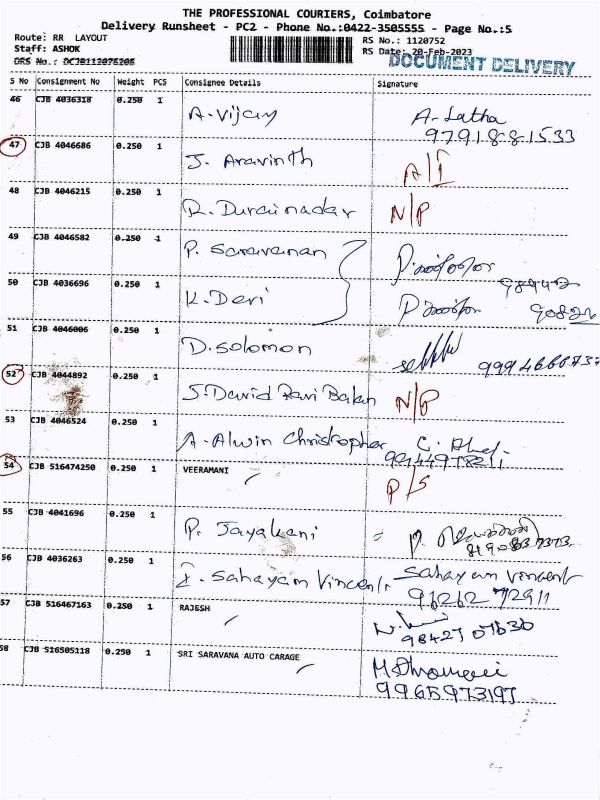 THE PROFESSIONAL COURIERS, Coimbatore
Delivery Runsheet - PC2 - Phone No.:0422-3505555 - Page No.:5
Route: RR LAYOUT
RS No.: 1120752
Staff: ASHOK
RS Date: 20-Feb-2023
DRS No.: DCJB112075205
DOCUMENT DELIVERY
S No Consignment No Weight PCS Consignee Details Signature
46 CJB 4036318 0.250 1 A. Vijay A. Latha
9791881533
47 CJB 4046686 0.250 1 J. Aravinth A/I
48 CJB 4046215 0.250 1 R. Durainadar N/P
49 CJB 4046582 0.250 1 P. Saravanan
50 CJB 4036696 0.250 1 K. Devi
51 CJB 4046006 0.250 1 D. Solomon
52 CJB 4044892 0.250 1 S. David Ravi Balan N/P
53 CJB 4046524 0.250 1 A. Alwin Christopher
54 CJB 516474250 0.250 1 VEERAMANI P/S
55 CJB 4041696 0.250 1 P. Jayakani
56 CJB 4036263 0.250 1 I. Sahayam Vincent Sahayam Vincent
96262 72911
57 CJB 516467163 0.250 1 RAJESH
98427 07630
58 CJB 516505118 0.250 1 SRI SARAVANA AUTO CARAGE
9965973197